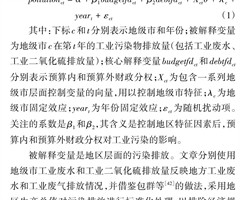 year_t + ε_ct (1)
其中:下标 c 和 t 分别表示地级市和年份;被解释变量
为地级市 c 在第 t 年的工业污染物排放量(包括工业废水、
工业二氧化硫排放量);核心解释变量 budgetfd_ct 和 debtfd_ct
分别表示预算内和预算外财政分权;X_ct 为包含一系列地
级市层面控制变量的向量,用以控制地级市特征;λ_c 为地
级市固定效应;year_t 为年份固定效应;ε_ct 为随机扰动项。
关注的系数是β₁ 和β₂,其含义是控制地区特征因素后,预
算内和预算外财政分权对工业污染的影响。
被解释变量是地区层面的污染排放。文章分别使用
地级市工业废水和工业二氧化硫排放量反映地方工业废
水和工业废气排放情况,并借鉴包群等[42]的做法,采用地